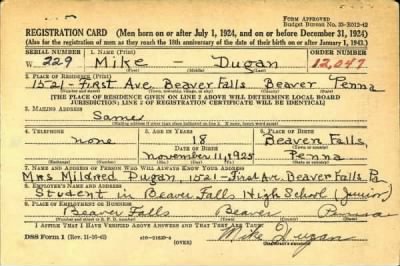 FORM APPROVED
Budget Bureau No. 33-R012-42
REGISTRATION CARD (Men born on or after July 1, 1924, and on or before December 31, 1924)
(Also for the registration of men as they reach the 18th anniversary of the date of their birth on or after January 1, 1943.)
SERIAL NUMBER 1. NAME (Print) ORDER NUMBER
W 229 Mike - Dugan 12,047
(First) (Middle) (Last)
2. PLACE OF RESIDENCE (Print)
1521-First Ave. Beaver Falls Beaver Penna
[THE PLACE OF RESIDENCE GIVEN ON LINE 2 ABOVE WILL DETERMINE LOCAL BOARD
JURISDICTION; LINE 2 OF REGISTRATION CERTIFICATE WILL BE IDENTICAL]
3. MAILING ADDRESS
Same
4. TELEPHONE 5. AGE IN YEARS 6. PLACE OF BIRTH
none 18 Beaver Falls,
DATE OF BIRTH
November, 11, 1925 Penna
7. NAME AND ADDRESS OF PERSON WHO WILL ALWAYS KNOW YOUR ADDRESS
Mrs Mildred Dugan, 1521-First Ave. Beaver Falls Pa
8. EMPLOYER'S NAME AND ADDRESS
Student in Beaver Falls High School (Junior)
9. PLACE OF EMPLOYMENT OR BUSINESS
Beaver Falls Beaver Penna
I AFFIRM THAT I HAVE VERIFIED ABOVE ANSWERS AND THAT THEY ARE TRUE.
DSS Form 1 (OVER)
Mike Dugan